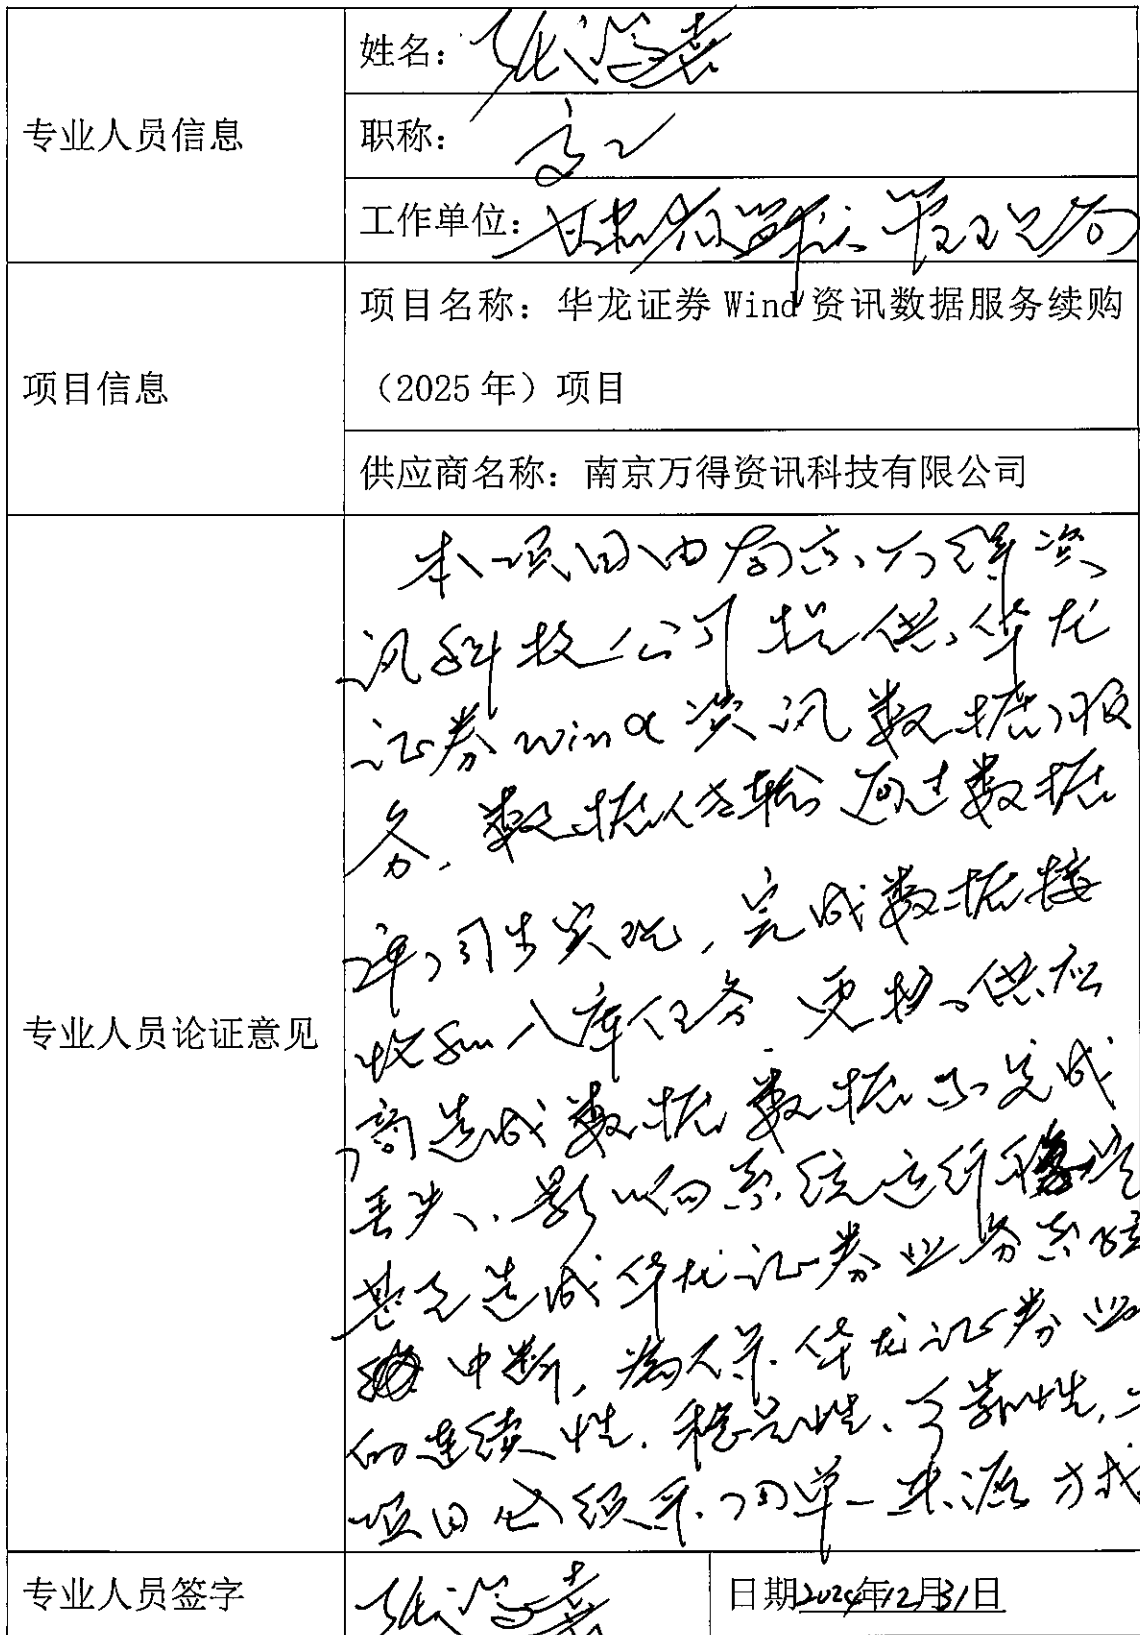 专业人员信息
姓名：张
职称：高工
工作单位：甘肃省 管理总局
项目信息
项目名称：华龙证券 Wind 资讯数据服务续购
（2025 年）项目
供应商名称：南京万得资讯科技有限公司
专业人员论证意见
本项目由南京万得资
讯科技公司提供华龙
证券wind资讯数据服
务，数据传输通过数据
库同步实现，完成数据接
收和入库任务．更换供应
商造成数据数据不完成
丢失、影响系统运行稳定
甚至造成华龙证券业务系统
中断，为了 华龙证券业
的连续性、稳定性、可靠性，
项目必须采用单一来源方式
专业人员签字
张
日期2024年12月31日